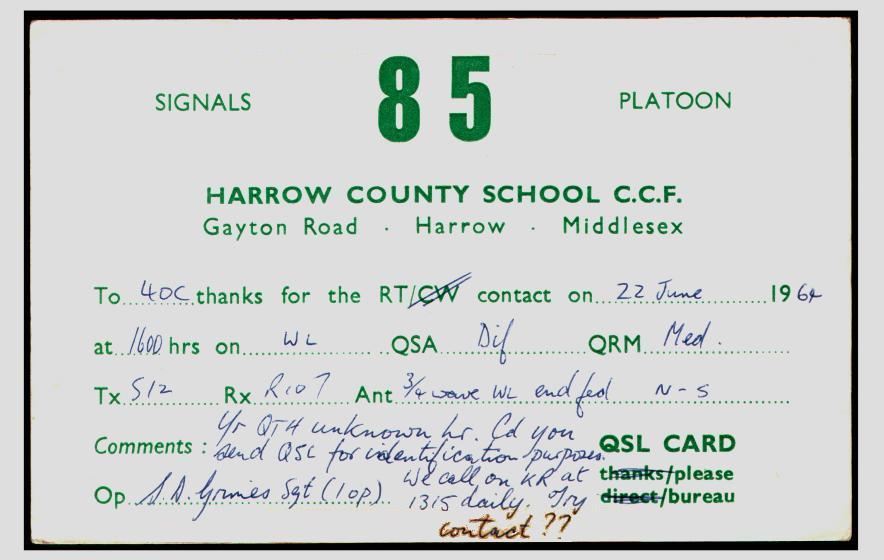 SIGNALS 85 PLATOON
HARROW COUNTY SCHOOL C.C.F.
Gayton Road · Harrow · Middlesex
To 40C thanks for the RT/CW contact on 22 June 1964
at 1600 hrs on WL QSA Dif QRM Med.
Tx S12 Rx R107 Ant 3/4 wave WL end fed N-S
Comments: Yr QTH unknown hr. Cd you
send QSL for identification purposes.
We call on KR at
1315 daily. Try
contact ??
QSL CARD
thanks/please
direct/bureau
Op S.D. Grimes Sgt (1 op)